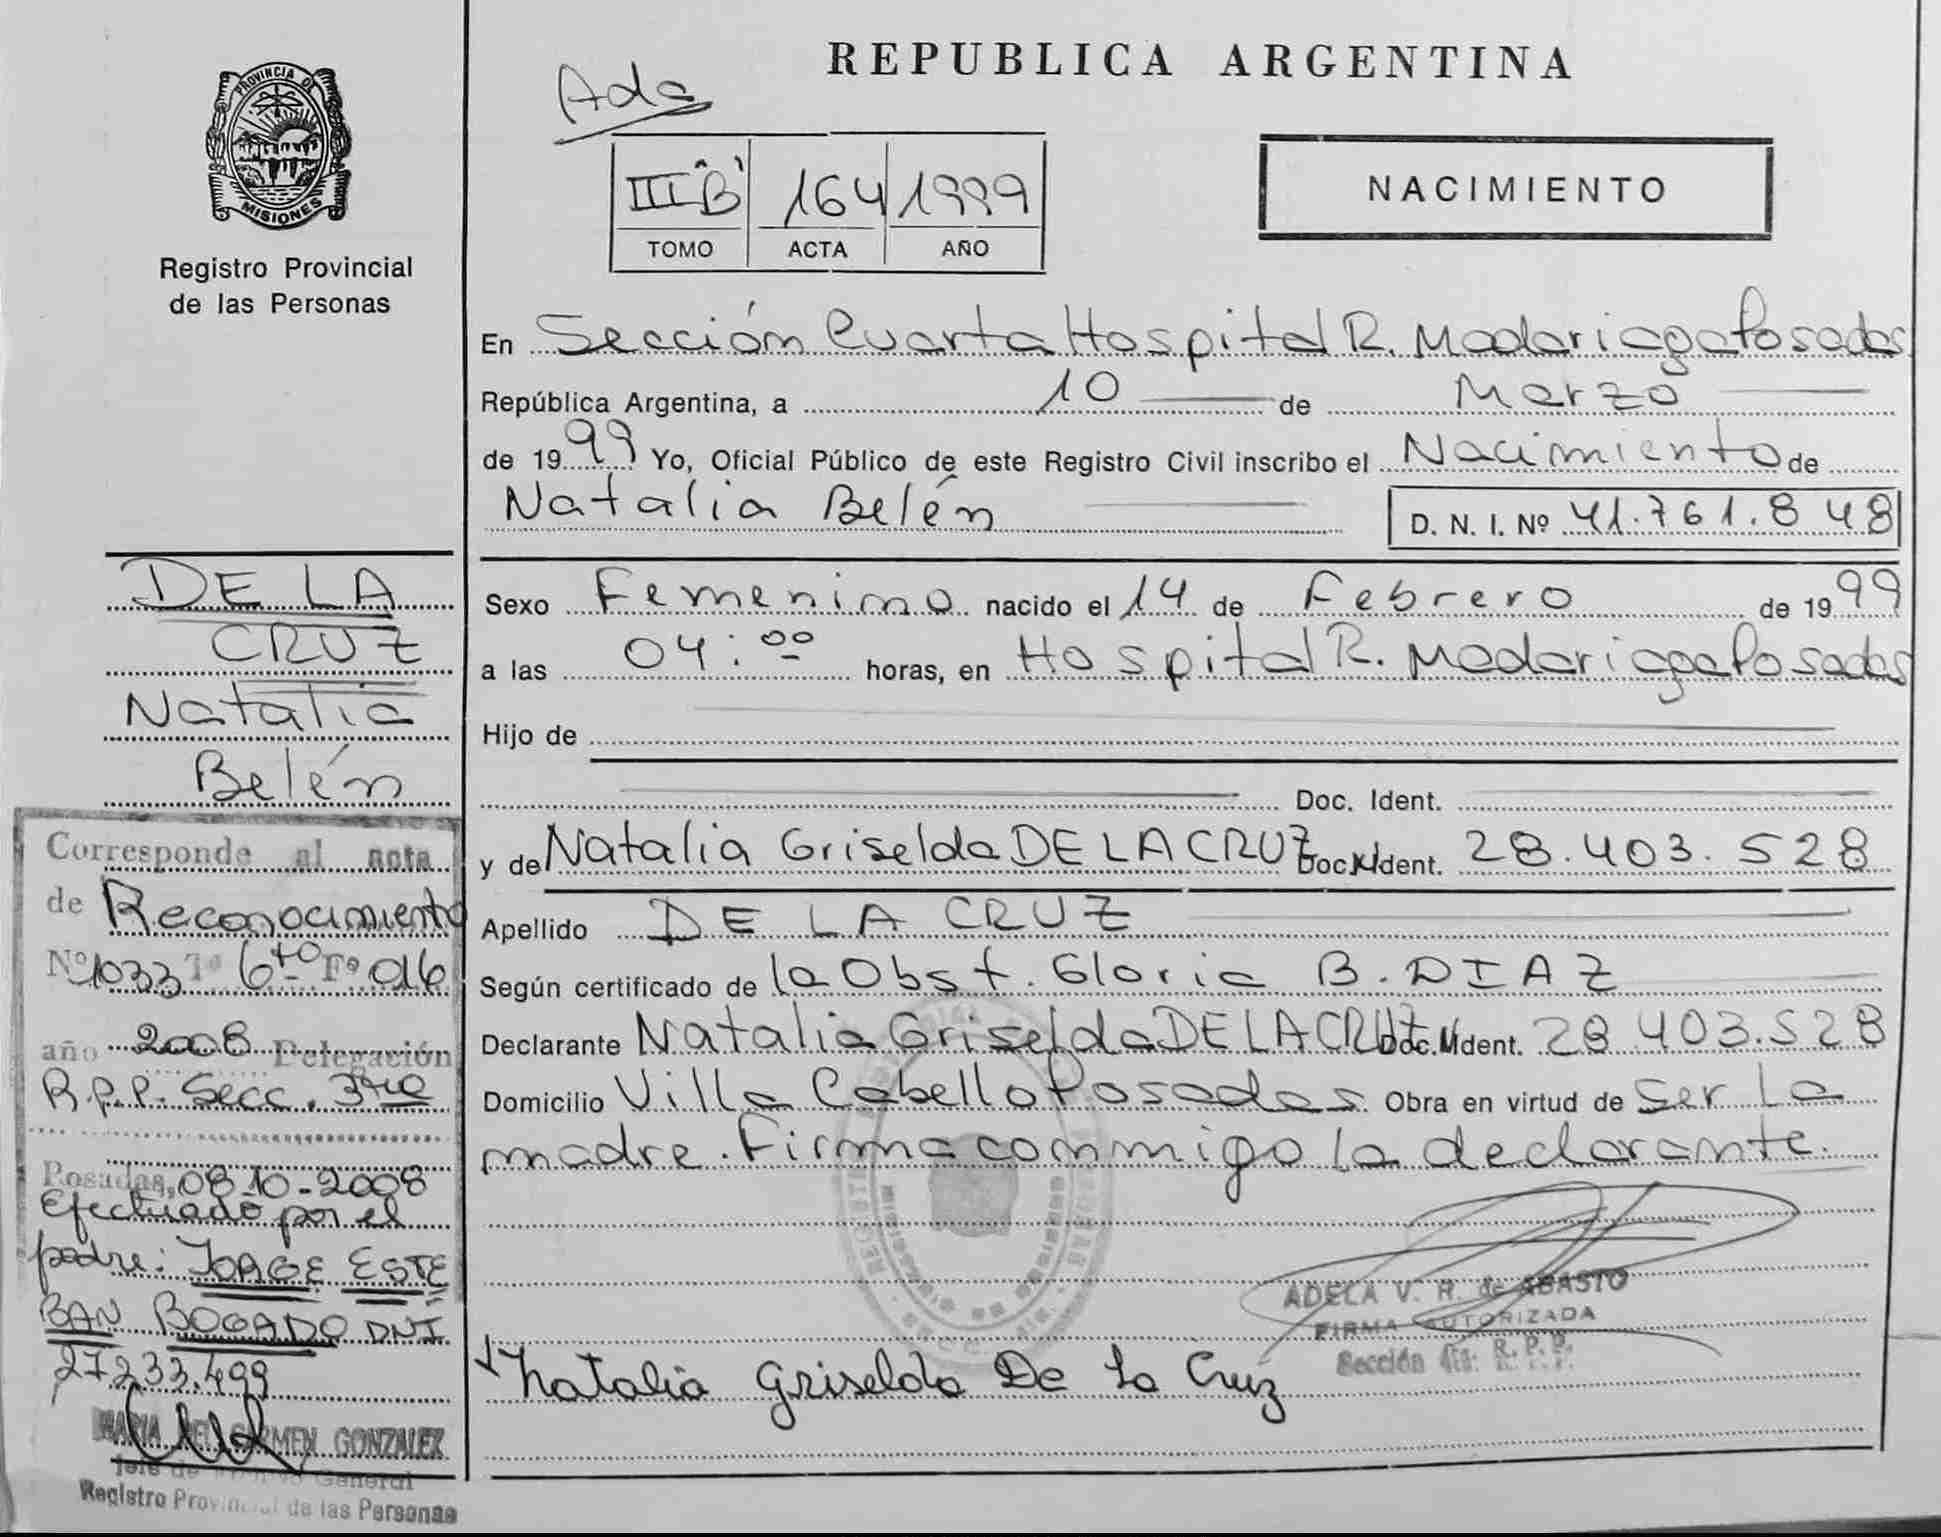 PROVINCIA DE
MISIONES
Registro Provincial
de las Personas
DE LA
CRUZ
Natalia
Belén
Corresponde al acta
de Reconocimiento
Nº 1033 Tº 6to Fº 016
año 2008 Delegación
R.P.P. Secc. 3ra
Posadas, 08-10-2008
Efectuado por el
padre: JORGE ESTE
BAN BOGADO DNI
27.233.499
MARIA DEL CARMEN GONZALEZ
Jefe de General
Registro Provincial de las Personas
REPUBLICA ARGENTINA
Ada
III "B" 164 1999
TOMO ACTA AÑO
NACIMIENTO
En Sección Cuarta Hospital R. Madariaga Posadas
República Argentina, a 10 de Marzo
de 1999 Yo, Oficial Público de este Registro Civil inscribo el Nacimiento de
Natalia Belén D. N. I. Nº 41.761.848
Sexo Femenino nacido el 14 de Febrero de 1999
a las 04:00 horas, en Hospital R. Madariaga Posadas
Hijo de
Doc. Ident.
y de Natalia Griselda DE LA CRUZ Doc. Ident. 28.403.528
Apellido DE LA CRUZ
Según certificado de la Obst. Gloria B. DIAZ
Declarante Natalia Griselda DE LA CRUZ Doc. Ident. 28.403.528
Domicilio Villa Cabello Posadas Obra en virtud de ser la
madre. Firma conmigo la declarante.
ADELA V. R. de ABASTO
FIRMA AUTORIZADA
Sección 4ta. R. P. P.
Natalia Griselda De La Cruz